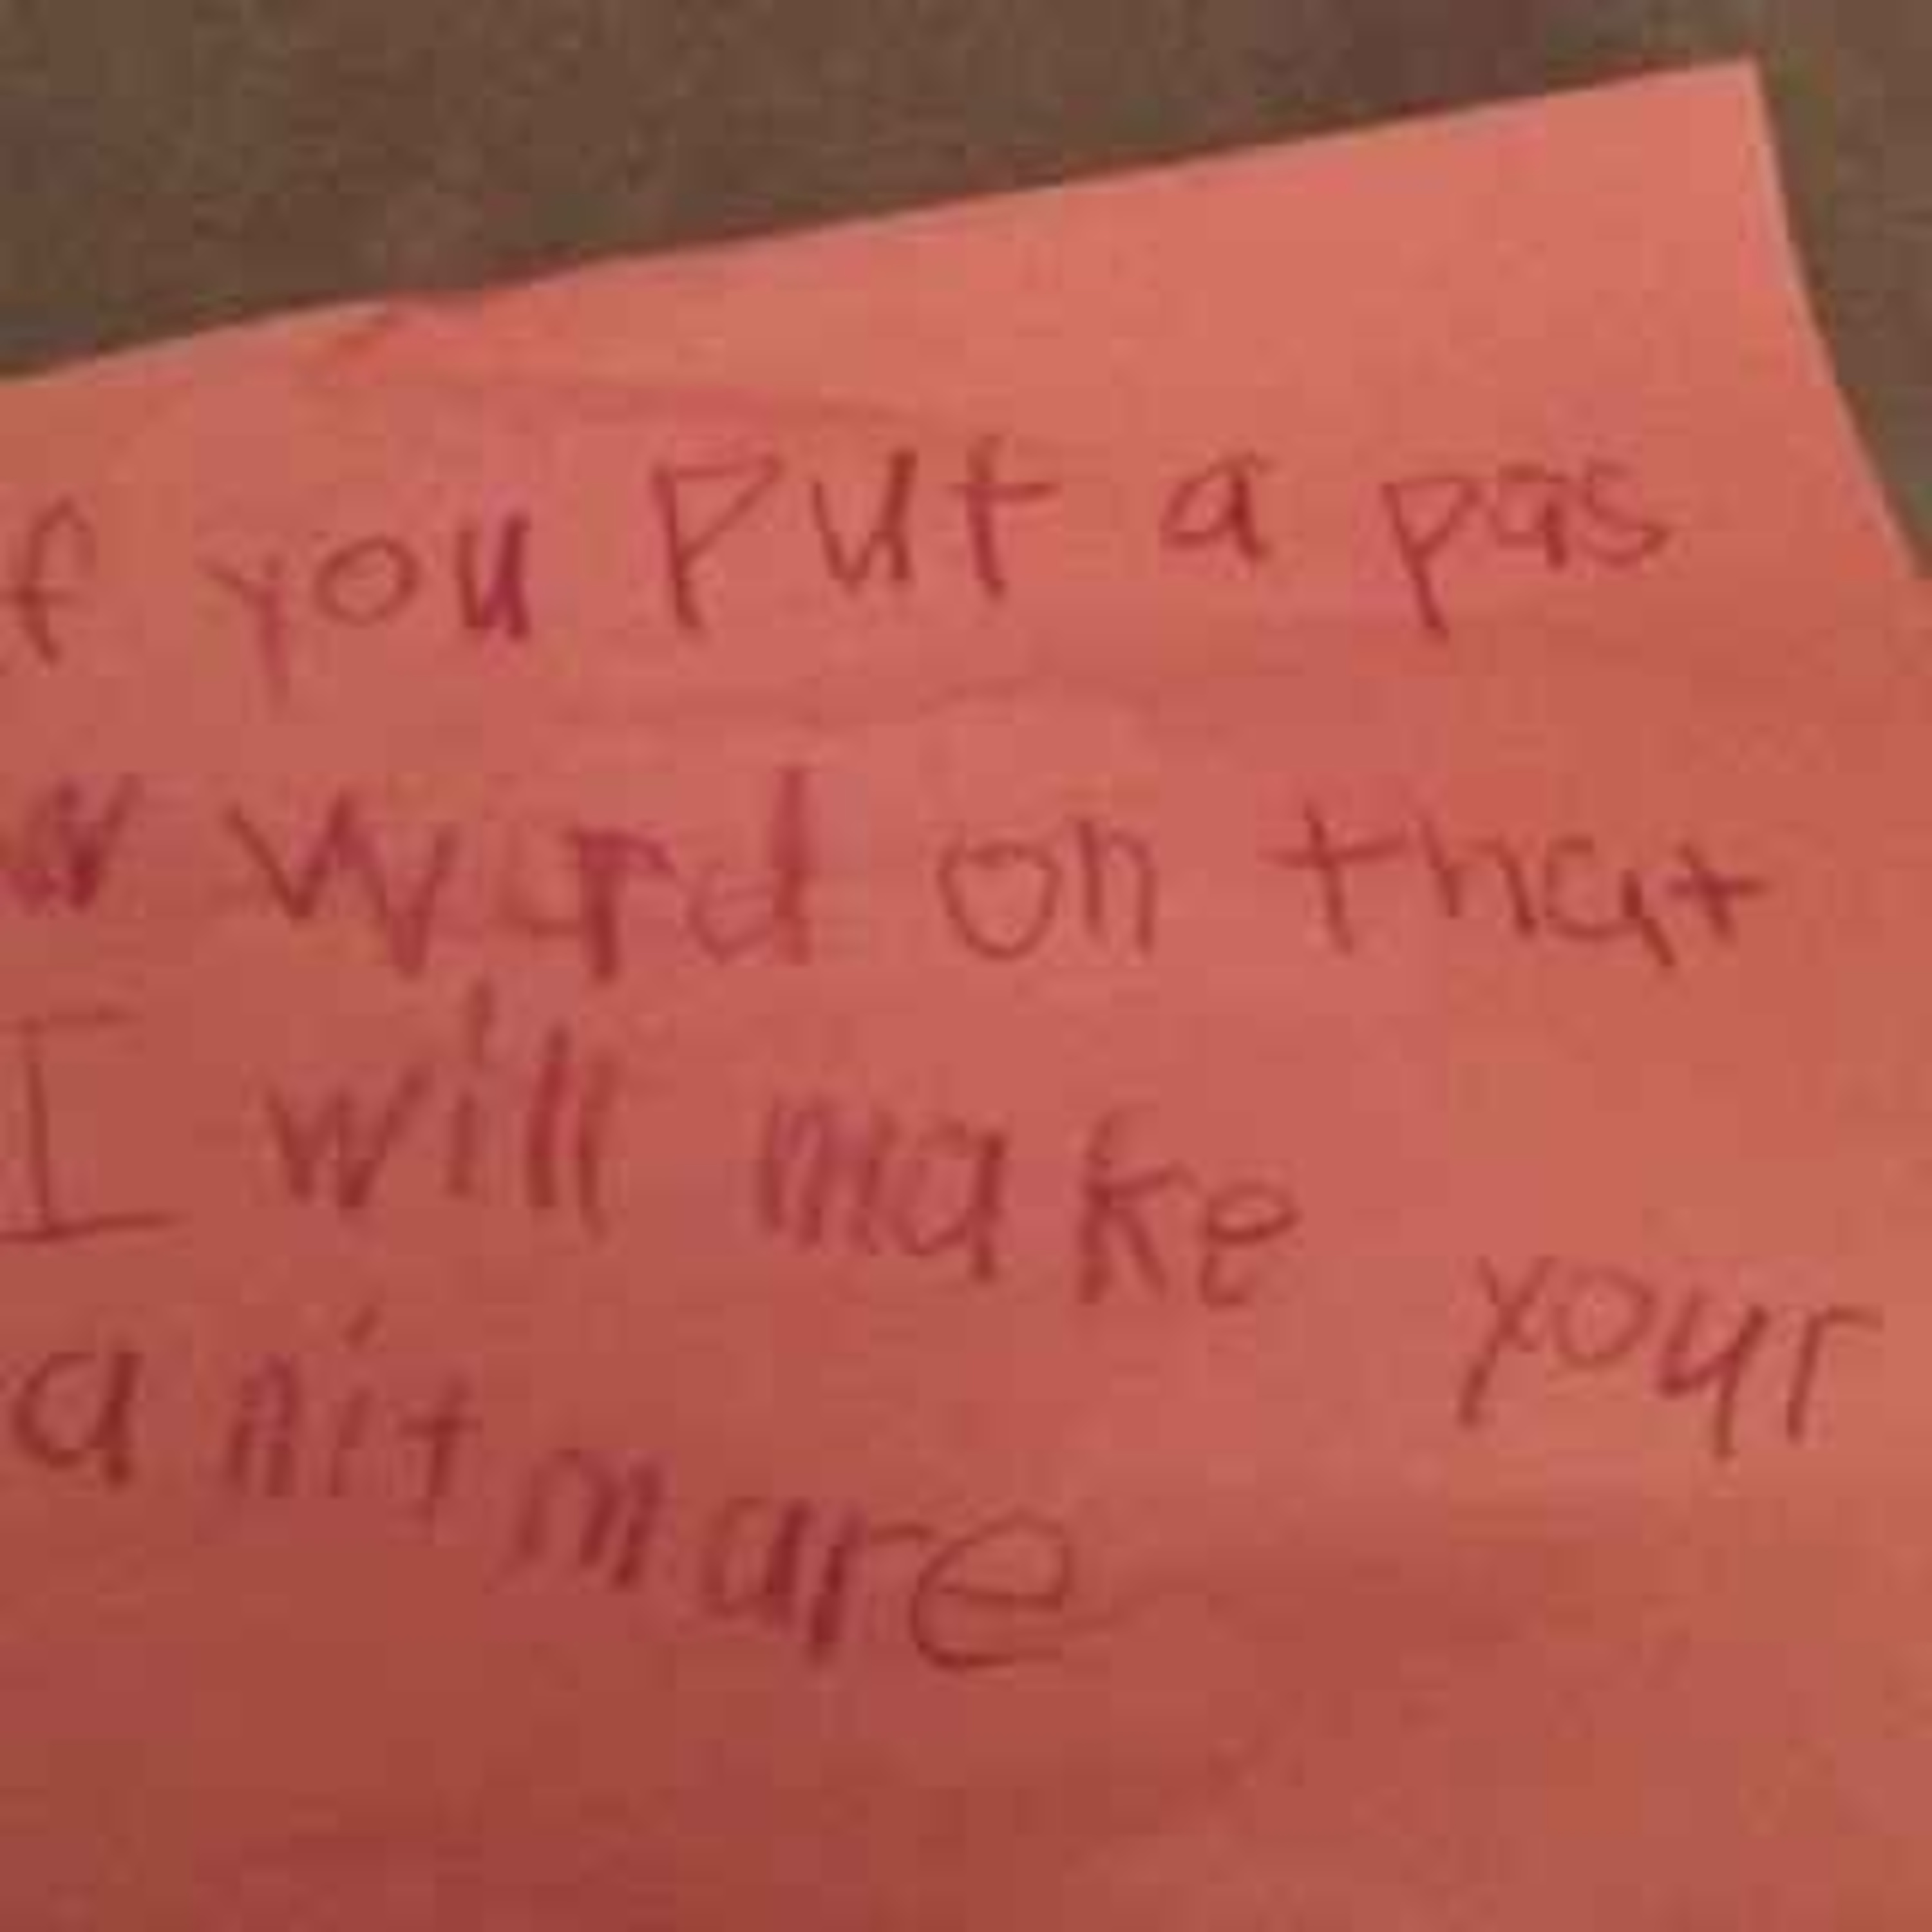 f you Put a pas
w Ward on that
I will make your
a nitmare